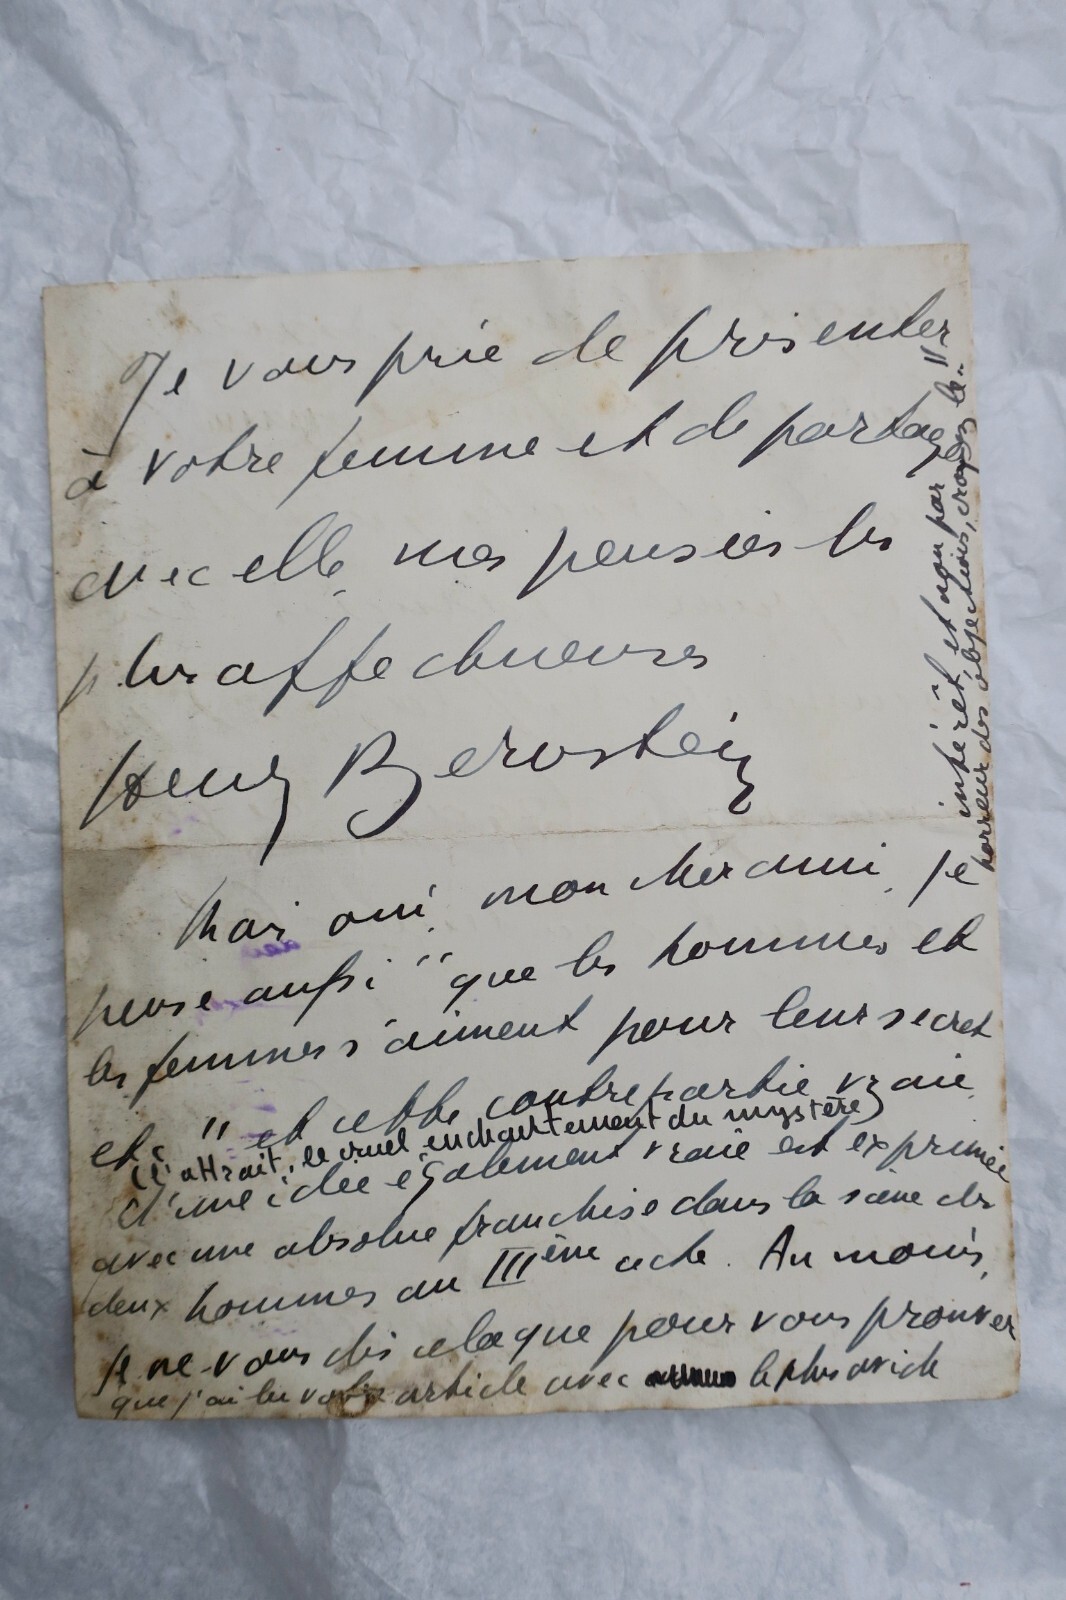 Je vous prie de présenter
à votre femme et de partager
avec elle, mes pensées les
plus affectueuses
Henry Bernstein
Mais oui, mon cher ami, je
pense aussi "que les hommes et
les femmes s'aiment pour leur secret
etc " et cette contrepartie vraie
(l'attrait, le cruel enchantement du mystère)
d'une idée également vraie est exprimée
avec une absolue franchise dans la scène des
deux hommes au IIIème acte. Au moins,
je ne vous dis cela que pour vous prouver
que j'ai lu votre article avec le plus avide
intérêt, et non par
horreur des objections, croyez le!!